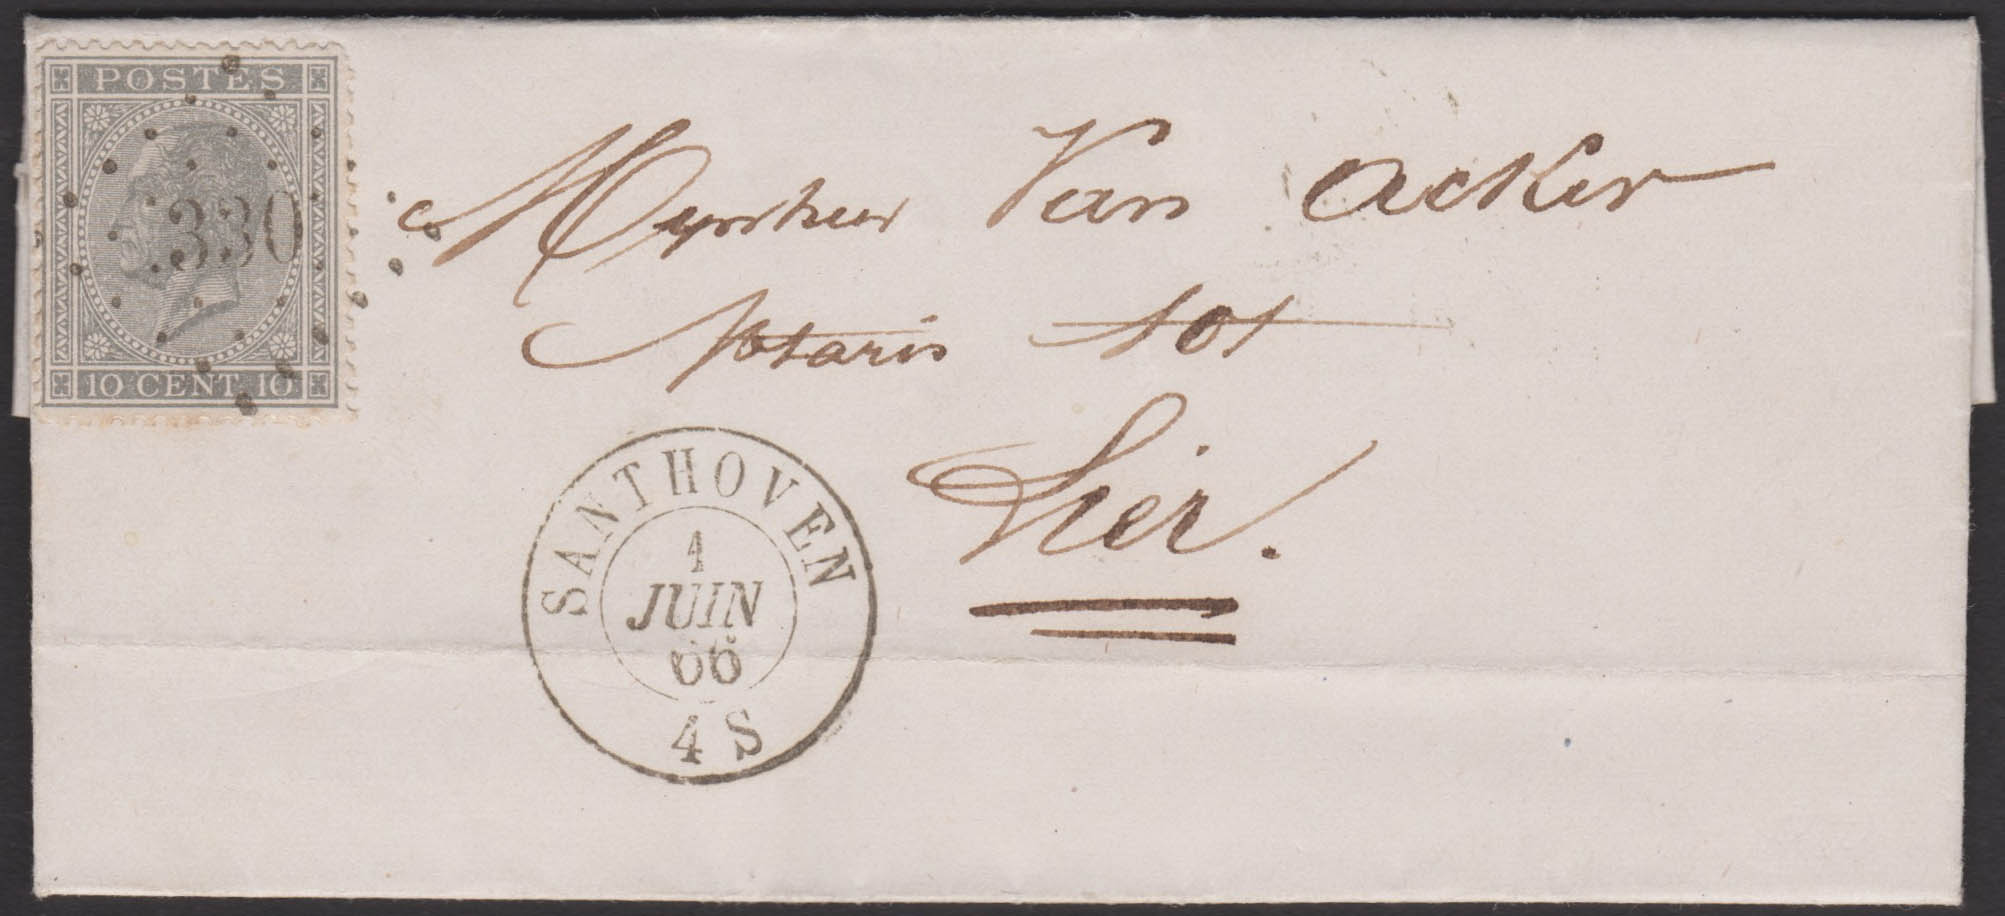 POSTES
330
10 CENT. 10
Mynheer Van Acker
Notaris tot
Lier.
SANTHOVEN
1
JUIN
66
4 S